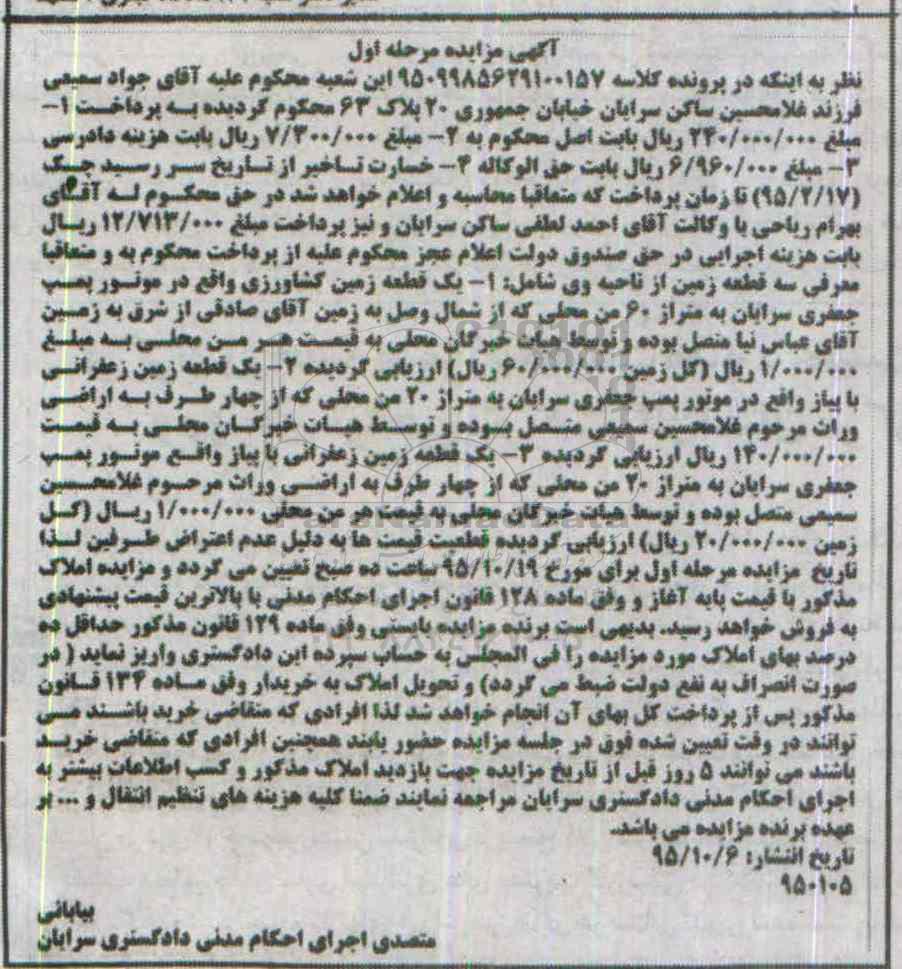 آگهی مزایده مرحله اول
نظر به اینکه در پرونده کلاسه ۹۵۰۹۹۸۵۶۲۹۱۰۰۱۵۷ این شعبه محکوم علیه آقای جواد سمیعی
فرزند غلامحسین ساکن سرایان خیابان جمهوری ۲۰ پلاک ۶۳ محکوم گردیده به پرداخت ۱-
مبلغ ۲۴۰/۰۰۰/۰۰۰ ریال بابت اصل محکوم به ۲- مبلغ ۷/۳۰۰/۰۰۰ ریال بابت هزینه دادرسی
۳- مبلغ ۶/۹۶۰/۰۰۰ ریال بابت حق الوکاله ۴- خسارت تاخیر از تاریخ سر رسید چک
(۹۵/۲/۱۷) تا زمان پرداخت که متعاقبا محاسبه و اعلام خواهد شد در حق محکوم له آقای
بهرام ریاحی با وکالت آقای احمد لطفی ساکن سرایان و نیز پرداخت مبلغ ۱۲/۷۱۳/۰۰۰ ریال
بابت هزینه اجرایی در حق صندوق دولت اعلام عجز محکوم علیه از پرداخت محکوم به و متعاقبا
معرفی سه قطعه زمین از ناحیه وی شامل: ۱- یک قطعه زمین کشاورزی واقع در موتور پمپ
جعفری سرایان به متراژ ۶۰ من محلی که از شمال وصل به زمین آقای صادقی از شرق به زمین
آقای عباس نیا متصل بوده و توسط هیات خبرگان محلی به قیمت هر من محلی به مبلغ
۱/۰۰۰/۰۰۰ ریال (کل زمین ۶۰/۰۰۰/۰۰۰ ریال) ارزیابی گردیده ۲- یک قطعه زمین زعفرانی
با پیاز واقع در موتور پمپ جعفری سرایان به متراژ ۲۰ من محلی که از چهار طرف به اراضی
وراث مرحوم غلامحسین سمیعی متصل بوده و توسط هیات خبرگان محلی به قیمت
۱۴۰/۰۰۰/۰۰۰ ریال ارزیابی گردیده ۳- یک قطعه زمین زعفرانی با پیاز واقع موتور پمپ
جعفری سرایان به متراژ ۲۰ من محلی که از چهار طرف به اراضی وراث مرحوم غلامحسین
سمیعی متصل بوده و توسط هیات خبرگان محلی به قیمت هر من محلی ۱/۰۰۰/۰۰۰ ریال (کل
زمین ۲۰/۰۰۰/۰۰۰ ریال) ارزیابی گردیده قطعیت قیمت ها به دلیل عدم اعتراض طرفین لذا
تاریخ مزایده مرحله اول برای مورخ ۹۵/۱۰/۱۹ ساعت ده صبح تعیین می گردد و مزایده املاک
مذکور با قیمت پایه آغاز و وفق ماده ۱۲۸ قانون اجرای احکام مدنی با بالاترین قیمت پیشنهادی
به فروش خواهد رسید. بدیهی است برنده مزایده بایستی وفق ماده ۱۲۹ قانون مذکور حداقل ده
درصد بهای املاک مورد مزایده را فی المجلس به حساب سپرده این دادگستری واریز نماید ( در
صورت انصراف به نفع دولت ضبط می گردد) و تحویل املاک به خریدار وفق ماده ۱۳۴ قانون
مذکور پس از پرداخت کل بهای آن انجام خواهد شد لذا افرادی که متقاضی خرید باشند می
توانند در وقت تعیین شده فوق در جلسه مزایده حضور یابند همچنین افرادی که متقاضی خرید
باشند می توانند ۵ روز قبل از تاریخ مزایده جهت بازدید املاک مذکور و کسب اطلاعات بیشتر به
اجرای احکام مدنی دادگستری سرایان مراجعه نمایند ضمنا کلیه هزینه های تنظیم انتقال و ... بر
عهده برنده مزایده می باشد.
تاریخ انتشار: ۹۵/۱۰/۶
۹۵۰۱۰۵
بیابانی
متصدی اجرای احکام مدنی دادگستری سرایان